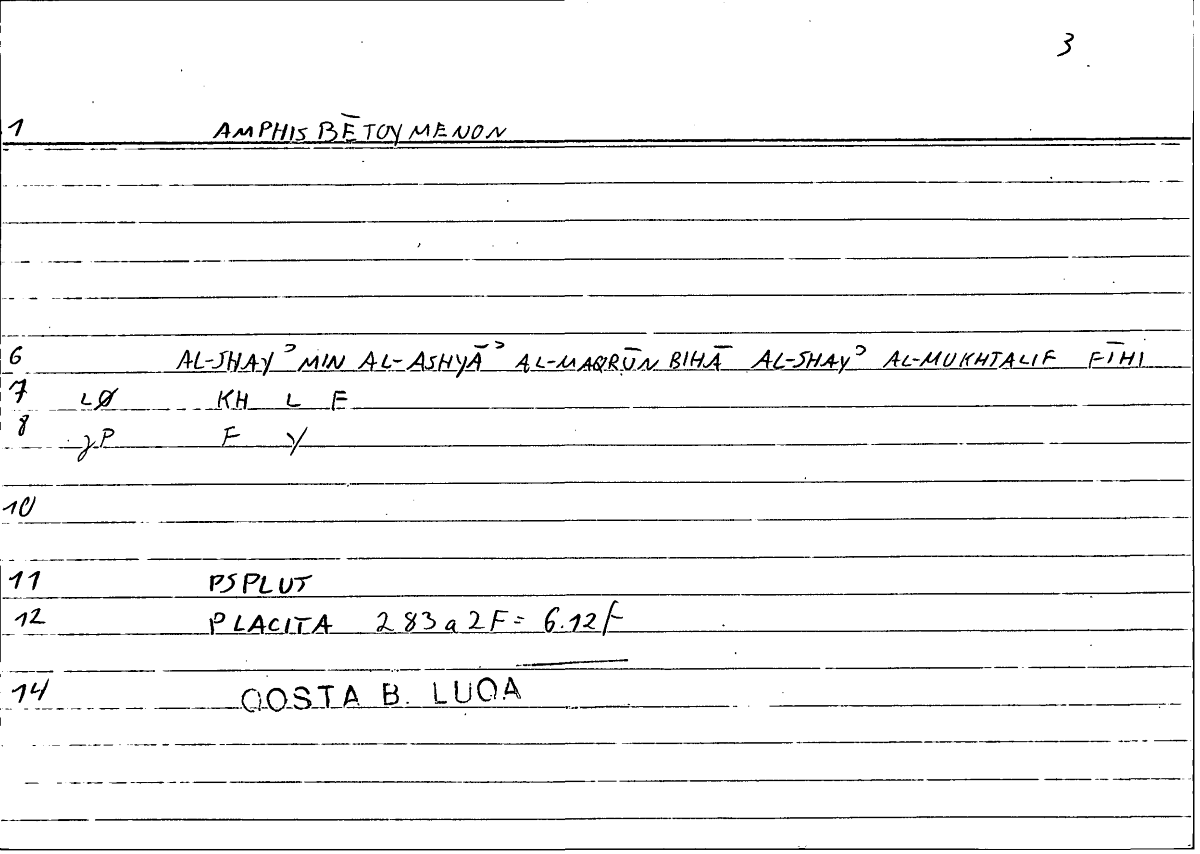 3
1 AMPHISBĒTOYMENON
6 AL-SHAYʾ MIN AL-ASHYĀʾ AL-MAQRŪN BIHĀ AL-SHAYʾ AL-MUKHTALIF FĪHI
7 LØ KH L F
8 γP F Y
10
11 PSPLUT
12 PLACITA 283a2F = 6.12F
14 QOSTA B. LUQA